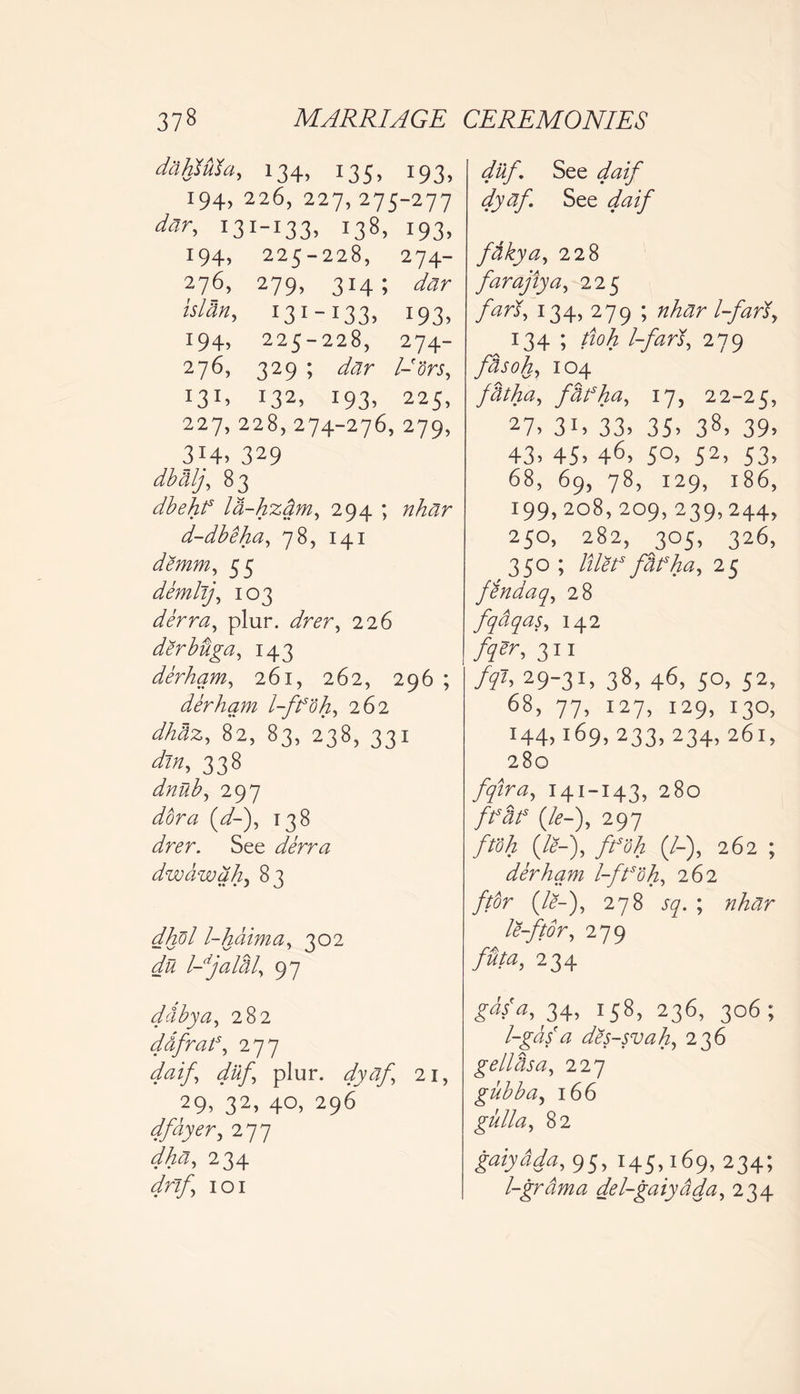 378 MARRIAGE CEREMONIES
dăḥšûša, 134, 135, 193,
194, 226, 227, 275-277
dār, 131-133, 138, 193,
194, 225-228, 274-
276, 279, 314; dār
islăn, 131-133, 193,
194, 225-228, 274-
276, 329; dār l-ʿörs,
131, 132, 193, 225,
227, 228, 274-276, 279,
314, 329
dbălj, 83
dbehtˢ lă-hzạm, 294; nhār
d-dbêḥa, 78, 141
dĕmm, 55
dĕmlīj, 103
dérra, plur. drer, 226
dĕrbûga, 143
dérhạm, 261, 262, 296;
dérhạm l-ftˢöḥ, 262
dhăz, 82, 83, 238, 331
dīn, 338
dnūb, 297
dôra (d-), 138
drer. See dérra
dwáwạḥ, 83
ḏḥōl l-ḫáima, 302
ḏū l-ᵈjalăl, 97
ḍâbya, 282
ḍâfratˢ, 277
ḍaif, ḍüf, plur. ḍyāf, 21,
29, 32, 40, 296
ḍfâyer, 277
ḍḥā, 234
ḍrīf, 101
ḍüf. See ḍaif
ḍyāf. See ḍaif
făkya, 228
farajīya, 225
farš, 134, 279; nhār l-farš,
134; ṭīoḥ l-farš, 279
făsoḫ, 104
fătha, fătˢḥa, 17, 22-25,
27, 31, 33, 35, 38, 39,
43, 45, 46, 50, 52, 53,
68, 69, 78, 129, 186,
199, 208, 209, 239, 244,
250, 282, 305, 326,
350; līlĕtˢ fătˢḥa, 25
fĕndaq, 28
fqâqaṣ, 142
fqēr, 311
fqī, 29-31, 38, 46, 50, 52,
68, 77, 127, 129, 130,
144, 169, 233, 234, 261,
280
fqīra, 141-143, 280
ftˢătˢ (le-), 297
ftōḥ (lĕ-), ftˢöḥ (l-), 262;
dérhạm l-ftˢöḥ, 262
fṭôr (lĕ-), 278 sq.; nhār
lĕ-fṭôr, 279
fûṭa, 234
gáṣʿa, 34, 158, 236, 306;
l-gáṣʿa dĕṣ-ṣvaḥ, 236
gellăsa, 227
gúbba, 166
gúlla, 82
ġaiyâḍa, 95, 145, 169, 234;
l-ġrâma ḏel-ġaiyâḍa, 234